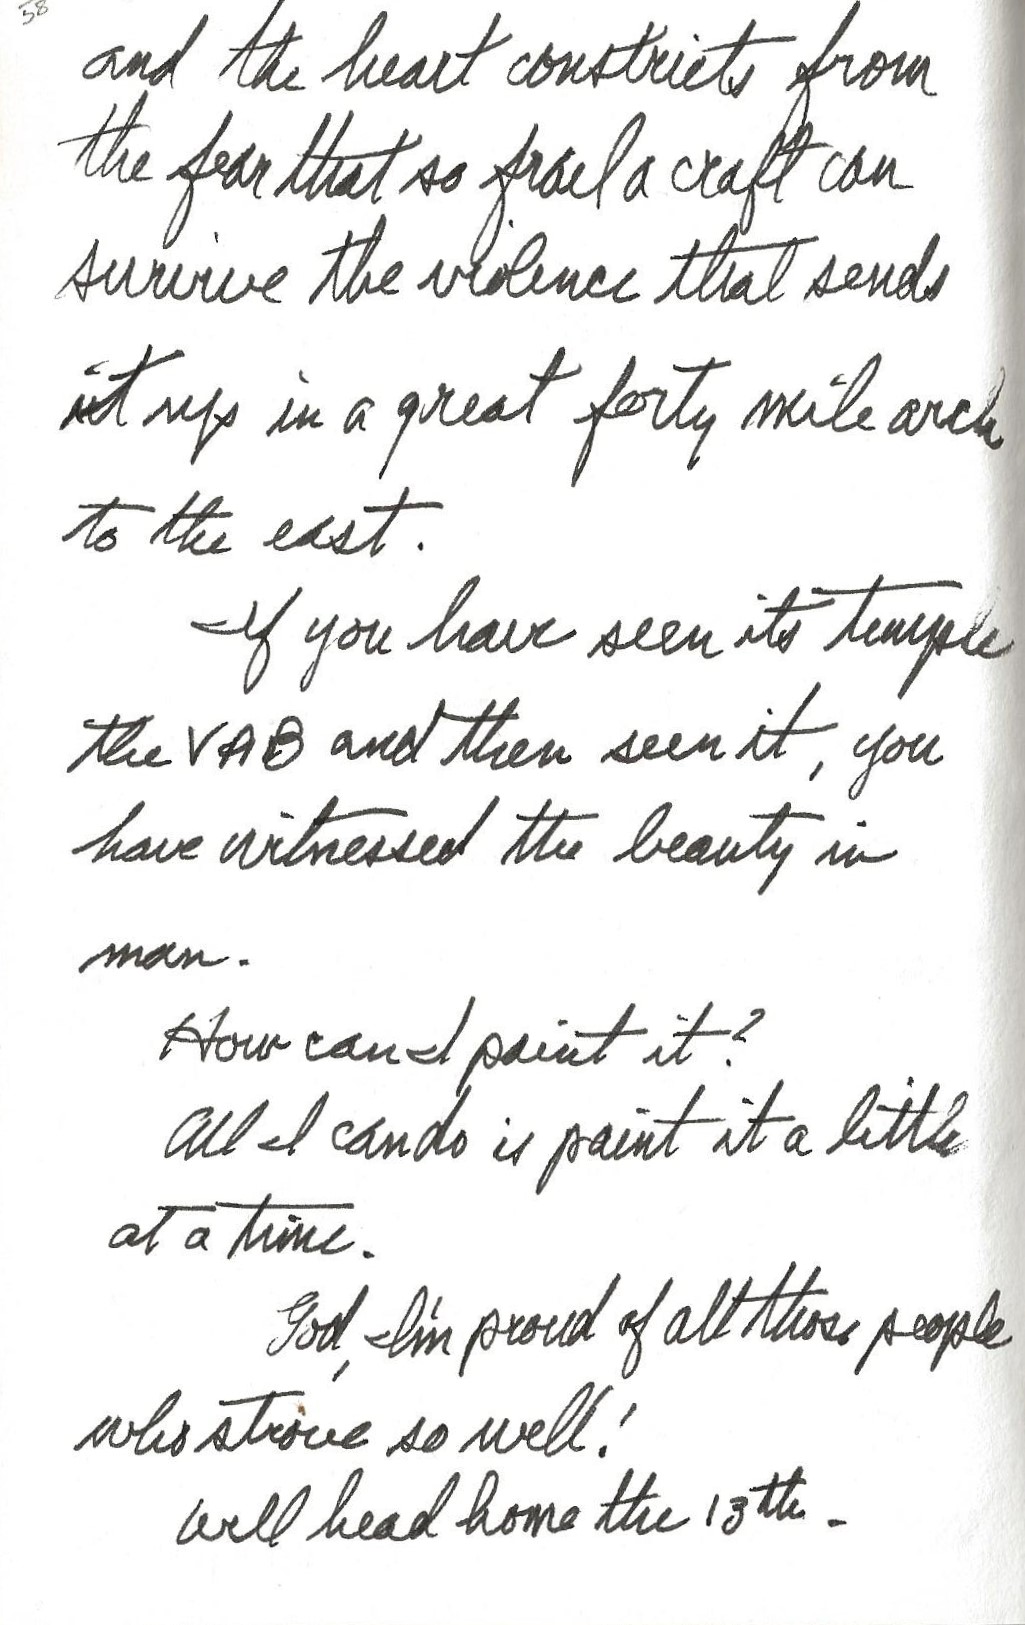 58
and the heart constricts from
the fear that so frael a craft can
survive the violence that sends
it up in a great forty mile arch
to the east.
If you have seen its temple
the VAB and then seen it, you
have witnessed the beauty in
man.
How can I paint it?
All I can do is paint it a little
at a time.
God, I'm proud of all those people
who strove so well!
Will head home the 13th -